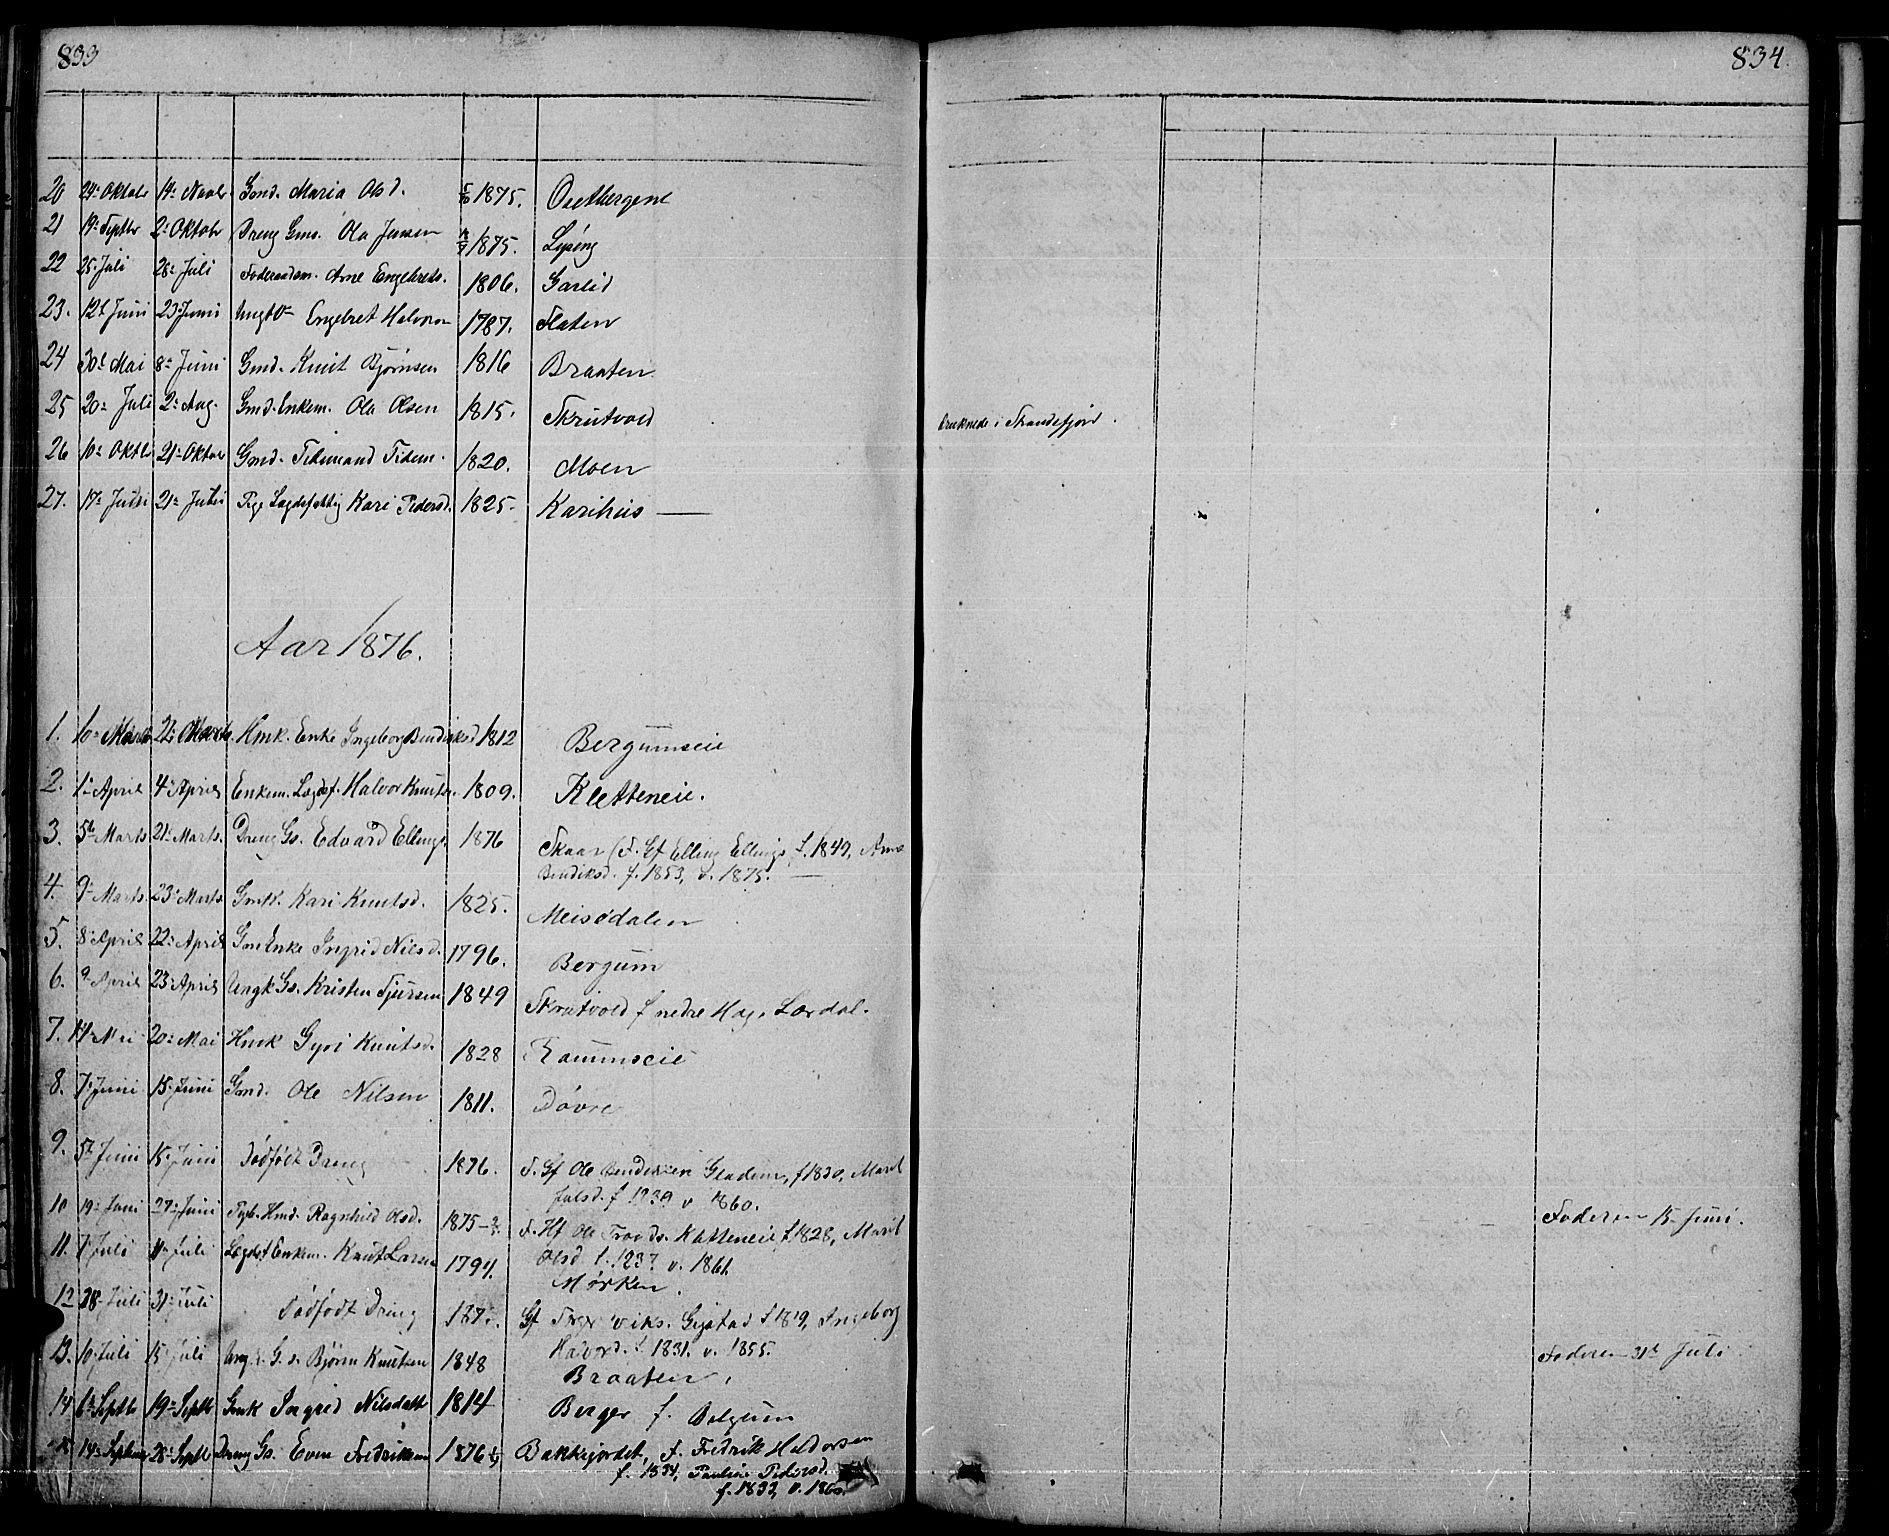 833
834.
20 24: Oktobr 14: Novbr. Gmd. Maria Olsd. 1875. Oeetbergene
21 19: Septbr 2: Oktobr Dreng Gms. Ola Jensen 1875. Lysing
22 25: Juli 28: Juli Foderaadsm. Arne Engebrets. 1806. Garlid
23. 12t Juni 23: Juni Engebret Halvorsn 1787. Flaten
24 30t Mai 8: Juni Gmd. Knut Bjørnsen 1816 Braaten
25 20: Juli 2: Aug. Gmd. Enkem. Ola Olsen 1815. Skrutvold druknede i Strandefjord.
26 10: Oktbr 21: Oktobr Gmd. Tidemand Tidem. 1820. Moen
27. 17: Juli 21: Juli Pige Lægdsfattig Kari Pedersd. 1825. Karihus —
Aar 1876.
1. 10: Marts 22: Marts. Hmk. Enke Ingeborg Bendiksd 1812 Bergumseie
2. 1: April 4: April Enkem. Lægdsf. Halvor Knuts. 1809. Kletteneie.
3. 5te Marts 21: Marts. Dreng Gs. Edvard Ellings. 1876 Skaar (F. Gf Elling Ellings. f. 1849, Anne
Bendiksd. f. 1853, v. 1875. —
4. 9: Marts 23: Marts. Gmk. Kari Knutsd. 1825. Meisdalen
5. 8: April 22: April Gm Enke Ingrid Nilsd. 1796. Bergum
6. 9: April 23: April Ungk Gs. Kristen Sjursen 1849 Skrutvold f nedre Hag. Lærdal.
7. 14: Mai 20: Mai Hmk Gyri Knutsd. 1828
8. 7: Juni 15: Juni Gmd. Ole Nilsen 1811. Døvre
9. 5te Juni 15: Juni Dødfødt Dreng 1876. F. Gf Ole Bendiksen Gladem, f 1830, Marit
f 1839 v 1860.
10 19: Juni 27: Juni Hmd. Ragnhild Olsd. 1875 F. Hf Ole Trondsn. Katteneie f. 1828, Marit
Olsd f. 1837 v. 1861. Foderen 15: Juni.
11. 7: Juli 11: Juli Lægdsf Enkem. Knut Larsen 1794. Mørken.
12 28: Juli 31: Juli Dødfødt Dreng 187 Gf Gigstad f 1819, Ingeborg
Halvord. f. 1831. v. 1855.
13. 10: Juli 15: Juli Ungk. G. s. Bjørn Knutsen 1848 Braaten, Foderen 31t Juli
14 6te Septbr 19: Septbr Gmk Ingrid Nilsdatt 1814 Berger f. Belgum
15 14: Septembr 28: Septbr Dreng Gs. Even Fredriksen 1876 Bakkejordet, F. Fredrik Haldorsen
f. 1834, Pauline Pedersd.
f. 1833, v. 1860.